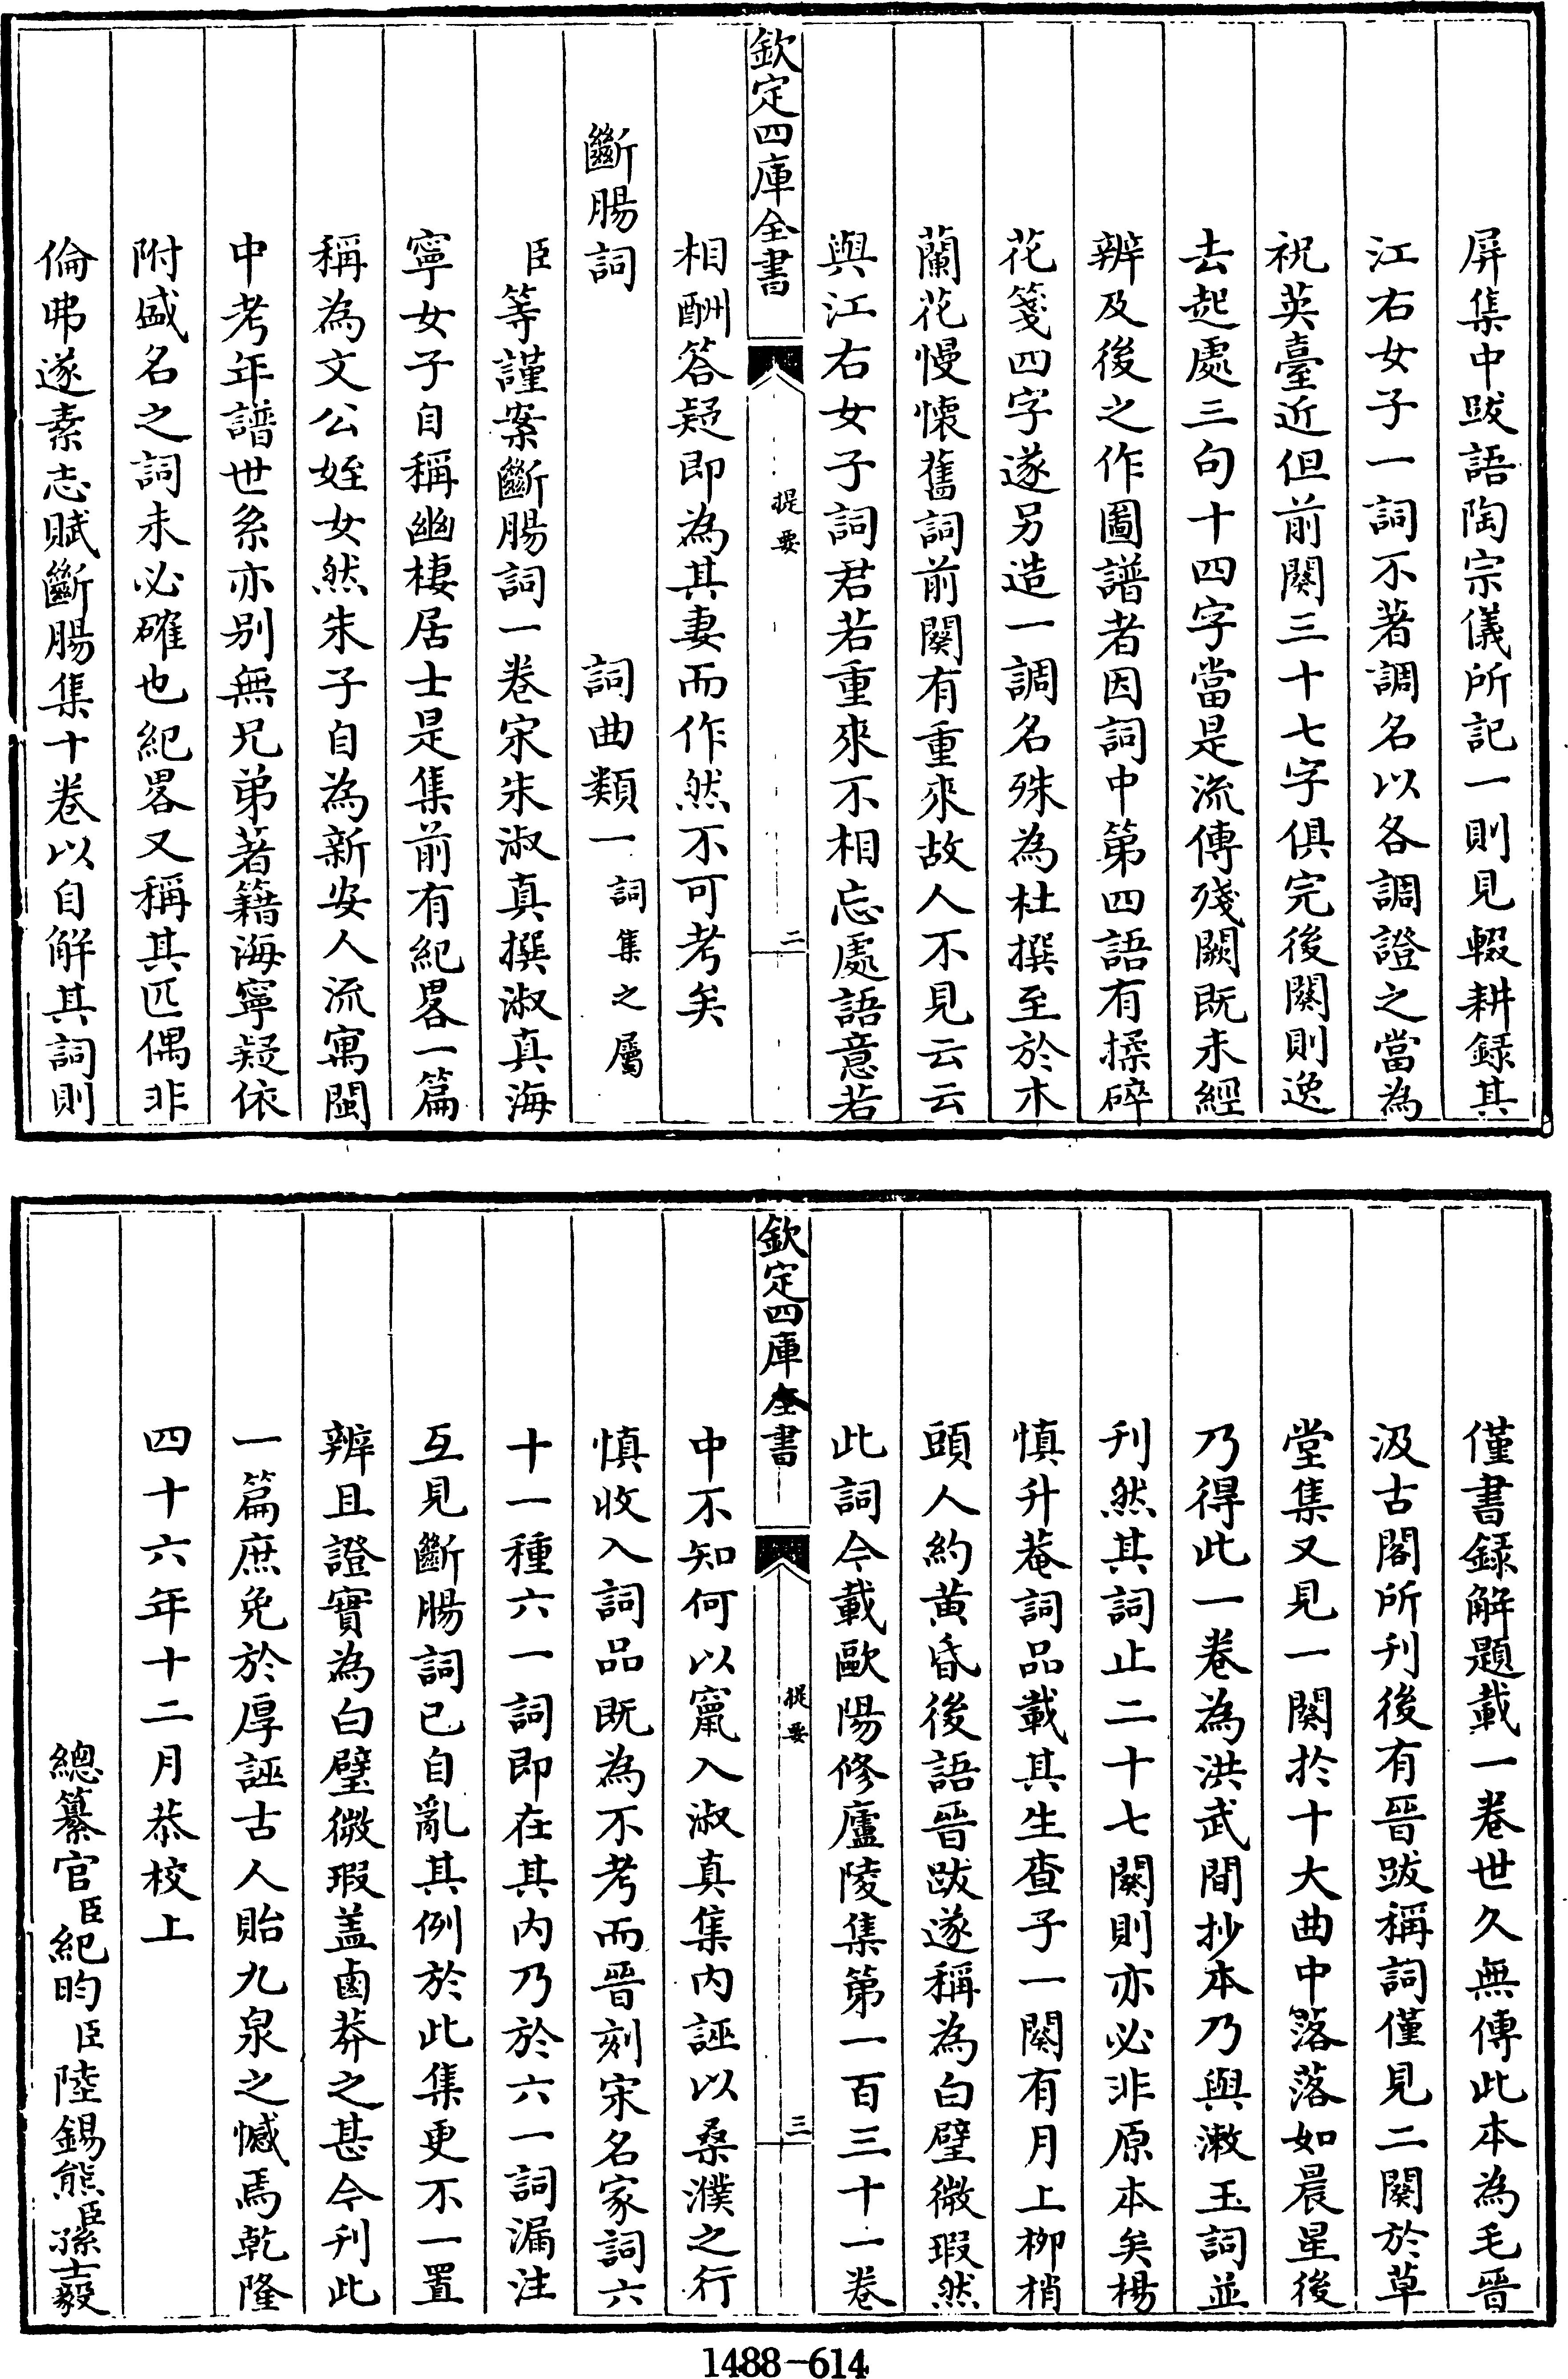 屏集中跋語陶宗儀所記一則見輟耕録其
江右女子一詞不著調名以各調證之當為
祝英臺近但前闋三十七字俱完後闋則逸
去起處三句十四字當是流傳殘闕既未經
辨及後之作圖譜者因詞中第四語有揉碎
花箋四字遂另造一調名殊為杜撰至於木
蘭花慢懐舊詞前闋有重來故人不見云云
與江右女子詞君若重來不相忘處語意若
欽定四庫全書
提要
二
相酬答疑即為其妻而作然不可考矣
斷腸詞 詞曲類一詞集之屬
臣等謹案斷腸詞一卷宋朱淑真撰淑真海
寧女子自稱幽棲居士是集前有紀畧一篇
稱為文公姪女然朱子自為新安人流寓閩
中考年譜世系亦别無兄弟著籍海寧疑依
附盛名之詞未必確也紀畧又稱其匹偶非
倫弗遂素志賦斷腸集十卷以自解其詞則
僅書録解題載一卷世久無傳此本為毛晉
汲古閣所刊後有晉跋稱詞僅見二闋於草
堂集又見一闋於十大曲中落落如晨星後
乃得此一卷為洪武間抄本乃與漱玉詞並
刊然其詞止二十七闋則亦必非原本矣楊
慎升菴詞品載其生查子一闋有月上栁梢
頭人約黄昏後語晉跋遂稱為白璧微瑕然
此詞今載歐陽修廬陵集第一百三十一卷
欽定四庫全書
提要
三
中不知何以竄入淑真集内誣以桑濮之行
慎收入詞品既為不考而晉刻宋名家詞六
十一種六一詞即在其内乃於六一詞漏注
互見斷腸詞已自亂其例於此集更不一置
辨且證實為白璧微瑕盖鹵莽之甚今刊此
一篇庶免於厚誣古人貽九泉之憾焉乾隆
四十六年十二月恭校上
總纂官臣紀昀臣陸錫熊臣孫士毅
1488-614